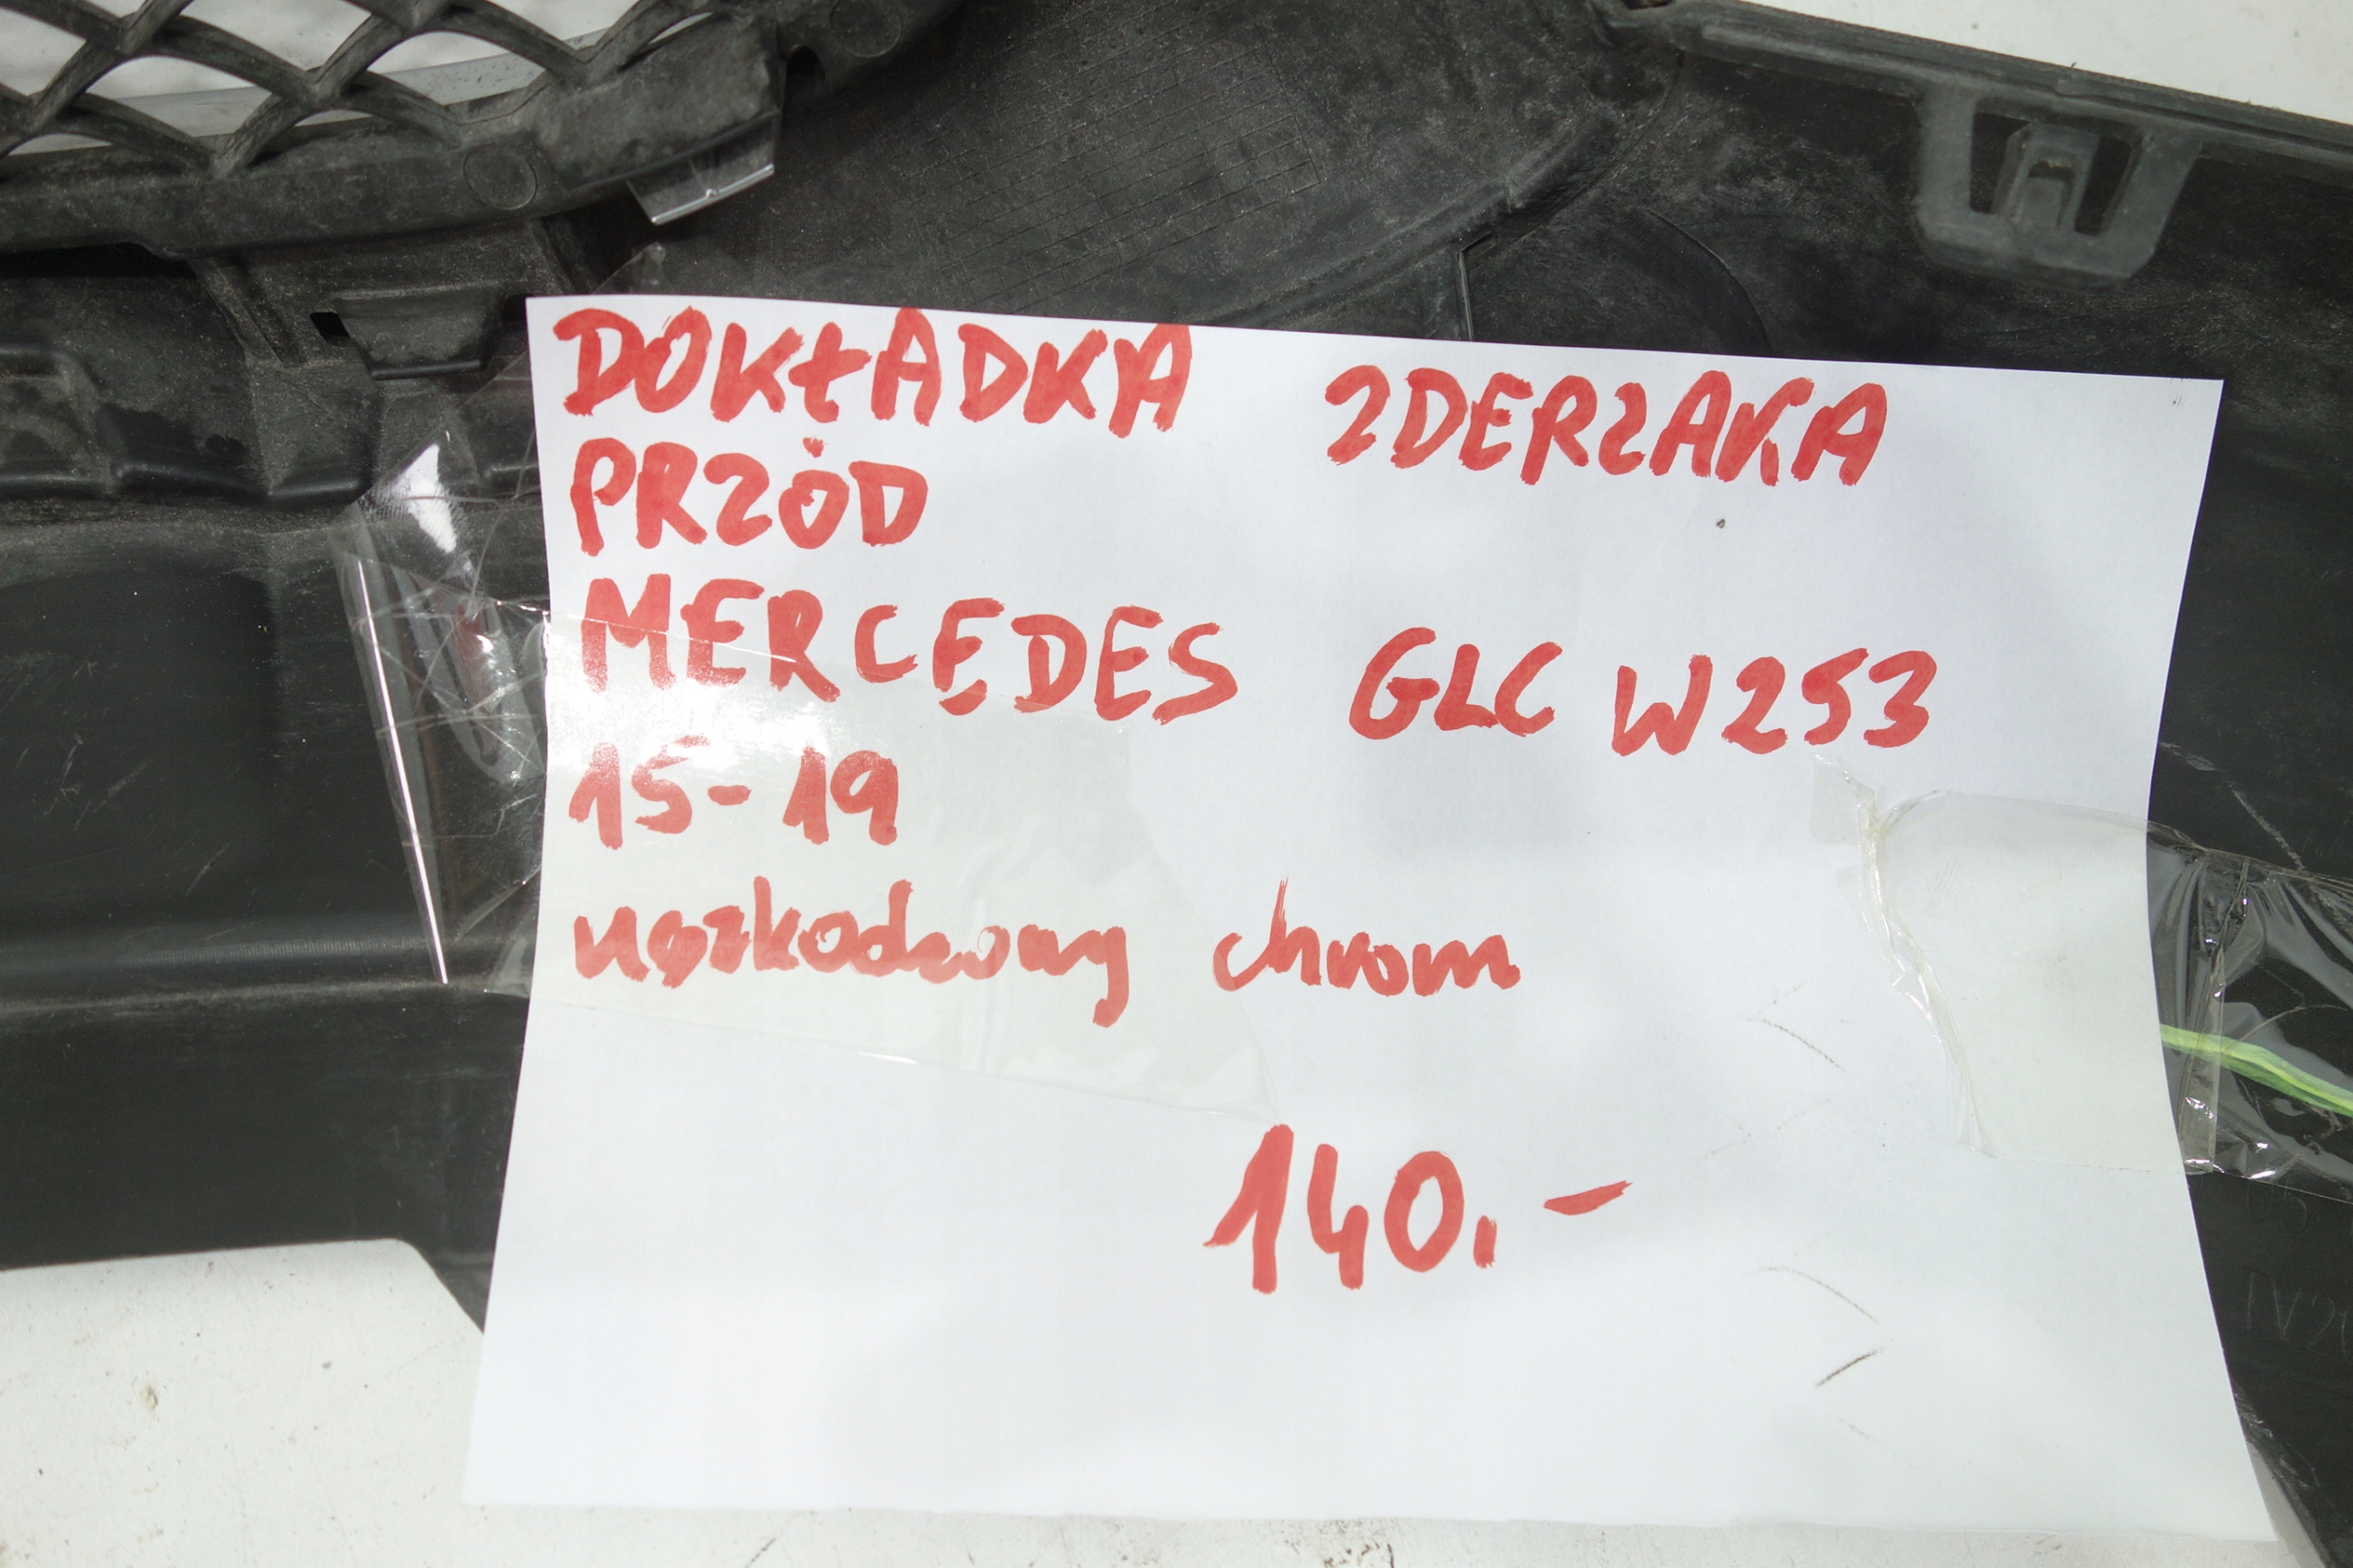 DOKŁADKA ZDERZAKA
PRZÓD
MERCEDES GLC W253
15-19
uszkodzony chrom
140.-